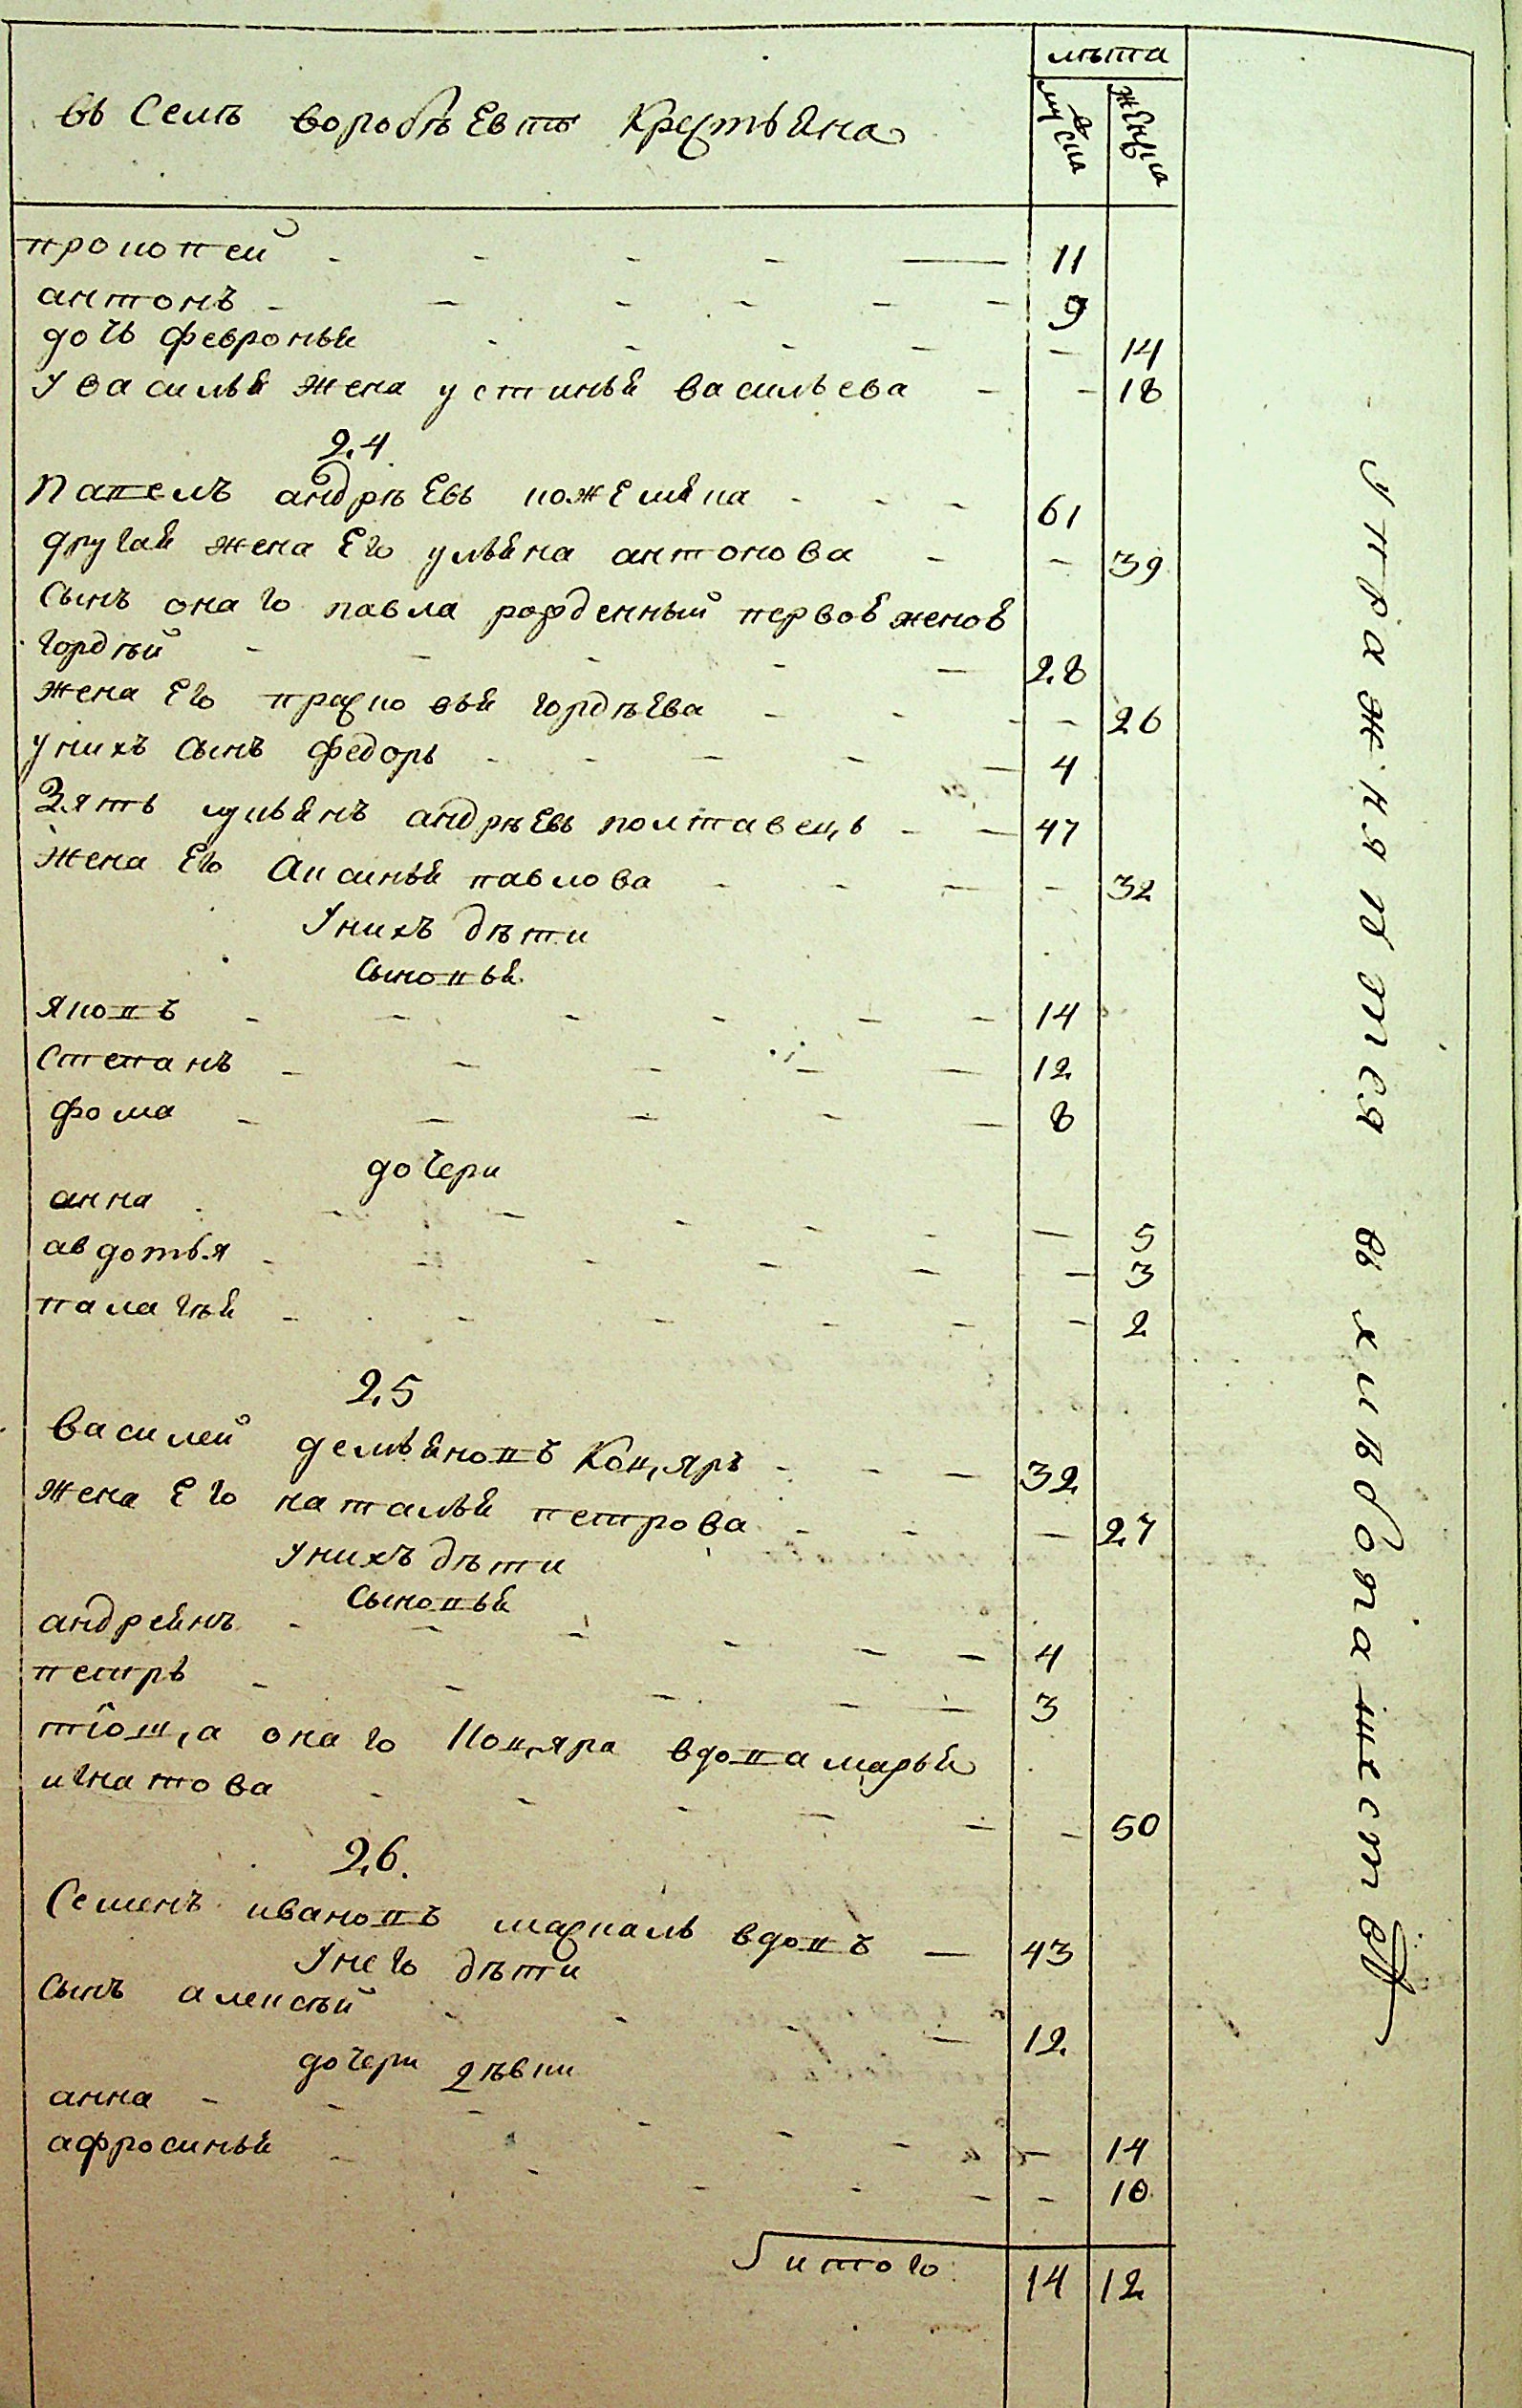 лѣта
въ Селѣ воробѣевкѣ Крестьяна
мужска
женска
прокопей - - - - — 11
антонъ - - - - - - 9
дочь февроньѣя - - - - - 14
у василья жена устинья васильева - - 18
24.
Павелъ андрѣевъ кожемяка - - - 61
другая жена Его ульяна антонова - - 39
Сынъ онаго павла рожденный первой женой
гордѣй - - - - - 28
жена Его прасковья гордѣева - - - - 26
у нихъ сынъ федоръ - - - - - 4
Зять лукьянъ андрѣевъ полтавецъ - - 47
жена Его Аксинья павлова - - - - 32
у нихъ дѣти
сыновья
яковъ - - - - - - 14
степанъ - - - - - 12
фома - - - - - 8
дочери
анна - - - - - - 5
авдотья - - - - - - 3
палагѣя - - - - - - 2
25
Василей демьяновъ Коцяръ - - - 32
жена Его наталья петрова - - - 27
у нихъ дѣти
сыновья
андреянъ - - - - - - 4
петръ - - - - - 3
тіоща онаго Коцяра вдова марья
игнатова - - - - - - 50
26.
Семенъ ивановъ маскаль вдовъ — 43
у него дѣти
сынъ алексѣй - - - - 12
дочери дѣвки
анна - - - - - - - 14
афросинья - - - - - - 10
итого: 14 12
упражняются въ хлѣбопашествѣ